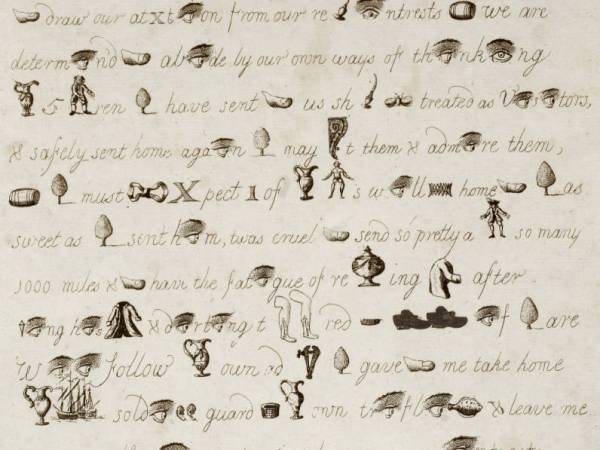 draw our at X t on from our re ntrests we are
determ n'd ab de by our own ways of th nk ng
5 ren have sent us sh treated as V s tors,
& safely sent home aga n may t them & adm re them,
must X pect 1 of 's w ll home as
sweet as sent h m, twas cruel send so pretty a so many
1000 miles & have the fat gue of re ing after
ng h s & d rt ng t red f are
W follow own ad gave me take home
sold guard own tr fl & leave me
the